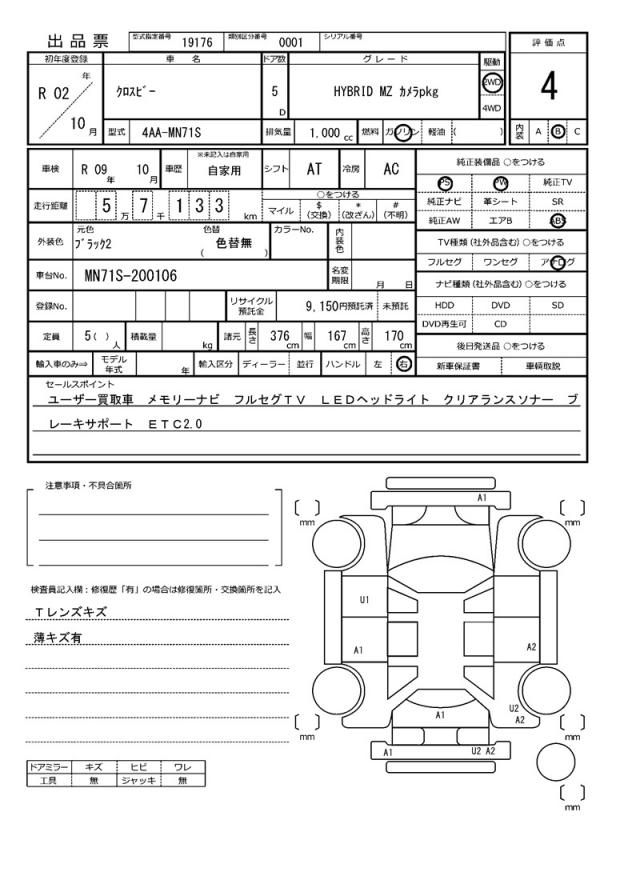 出品票 型式指定番号 19176 類別区分番号 0001 シリアル番号
評価点
初年度登録 車名 ドア数 グレード 駆動
R 02 年 クロスビー 5 D HYBRID MZ カメラpkg 2WD 4
4WD
10 月 型式 4AA-MN71S 排気量 1.000 cc 燃料 ガソリン 軽油 ( ) 内装 A B C
車検 R 09 年 10 月 車歴 ※未記入は自家用 自家用 シフト AT 冷房 AC 純正装備品 ○をつける
PS PW 純正TV
走行距離 5 万 7 千 1 3 3 km ○をつける 純正ナビ 革シート SR
マイル $ (交換) * (改ざん) # (不明) 純正AW エアB ABS
外装色 元色 ブラック2 色替 色替無 ( ) カラーNo. 内装色 TV種類 (社外品含む) ○をつける
フルセグ ワンセグ アナログ
車台No. MN71S-200106 名変期限 月 日 ナビ種類 (社外品含む) ○をつける
登録No. リサイクル預託金 9,150円預託済 未預託 HDD DVD SD
DVD再生可 CD
定員 5( ) 人 積載量 kg 諸元 長さ 376 cm 幅 167 cm 高さ 170 cm 後日発送品 ○をつける
輸入車のみ⇒ モデル年式 年 輸入区分 ディーラー 並行 ハンドル 左 右 新車保証書 車輌取説
セールスポイント
ユーザー買取車 メモリーナビ フルセグTV LEDヘッドライト クリアランスソナー ブ
レーキサポート ETC2.0
注意事項・不具合箇所
A1
mm mm
検査員記入欄：修復歴「有」の場合は修復箇所・交換箇所を記入
U1
Tレンズキズ
薄キズ有
A1 A2
A1 U2
A2
mm mm
A1 U2 A2
ドアミラー キズ ヒビ ワレ
工具 無 ジャッキ 無
mm